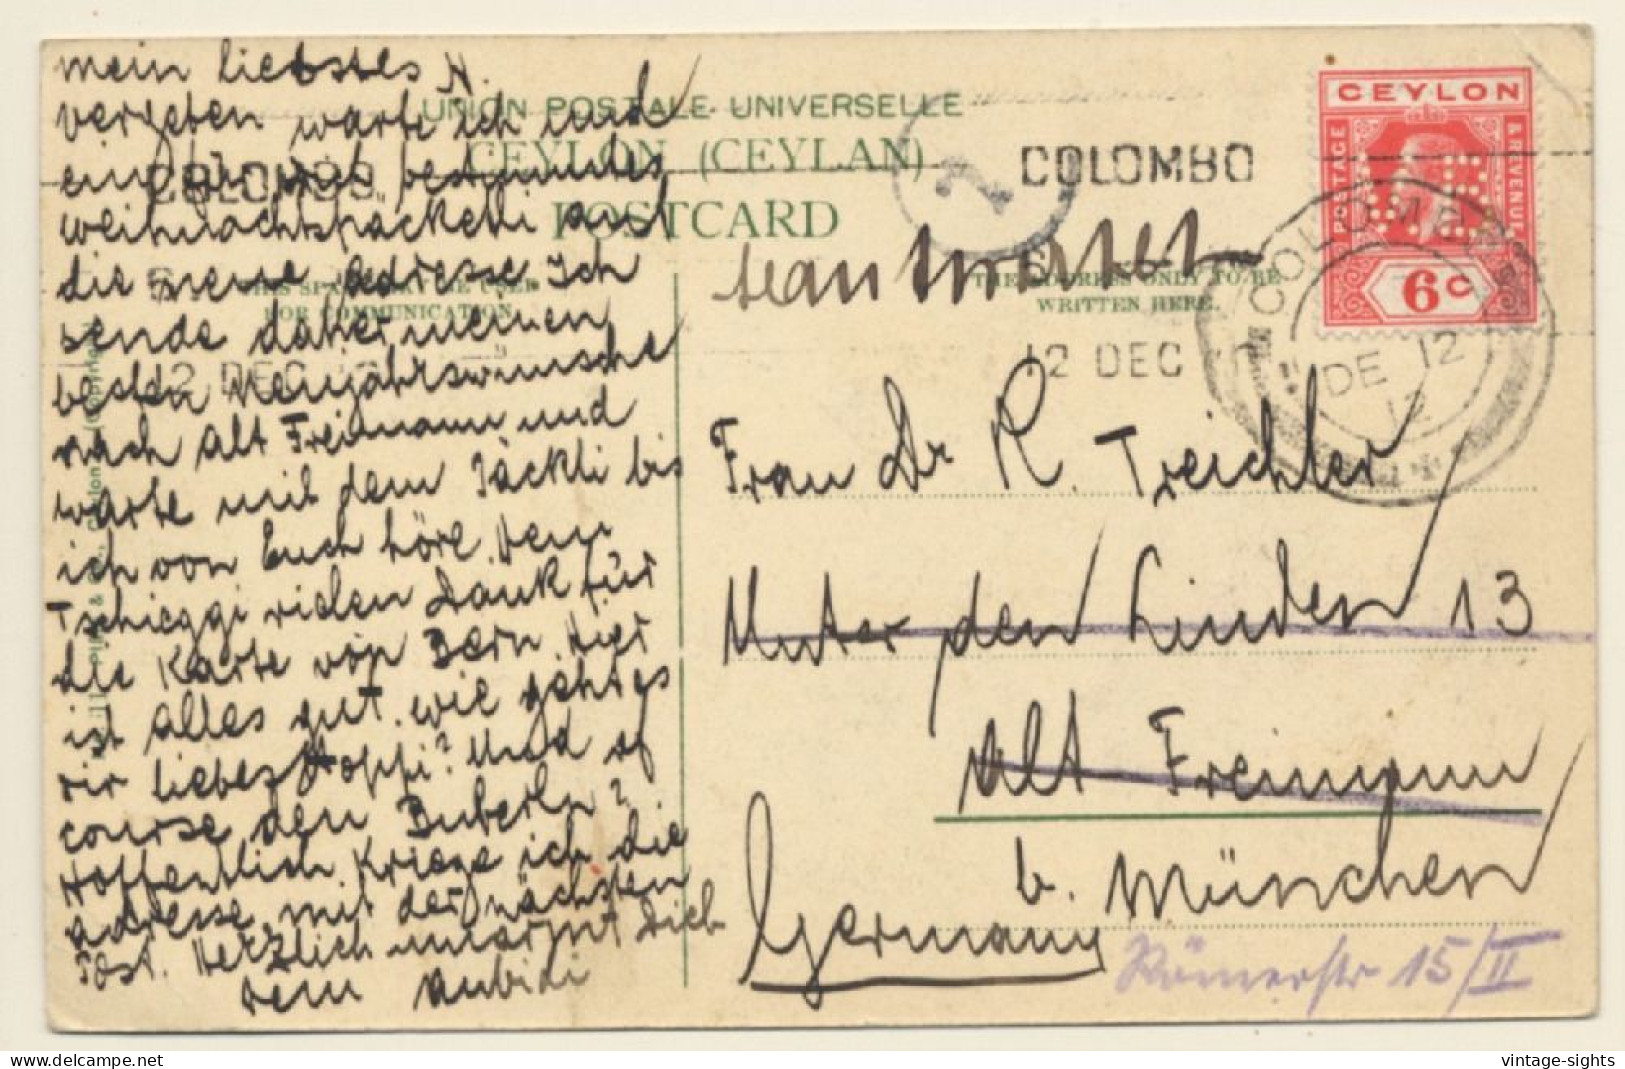 mein liebstes A.
vergeben warte ich und
ein für mich bestimmtes
weihnachtspäckelti auf
die neue Adresse. Ich
sende daher meinen
besten Neujahrswunsche
nach Alt Freimann und
warte mit dem Päckli bis
ich von Euch höre. Dem
Tschieggi vielen Dank für
die Karte von Bern. Hier
ist alles gut. wie gehts
dir liebes Hoppi? Und of
course den Buberln?
Hoffentlich kriege ich die
Adresse mit der nächsten
Post. Herzlich umarmt Dich
Dein Aubidi
UNION POSTALE UNIVERSELLE
CEYLON (CEYLAN)
POSTCARD
THIS SPACE MAY BE USED
FOR COMMUNICATION.
THE ADDRESS ONLY TO BE
WRITTEN HERE.
COLOMBO
12 DEC
COLOMBO
12 DEC
2
CEYLON
POSTAGE
& REVENUE
6c
COLOMBO
DE 12
12
Frau Dr R. Treichler
Unter den Linden 13
Alt Freimann
b. München
Germany
Römerstr 15/II
vintage-sights